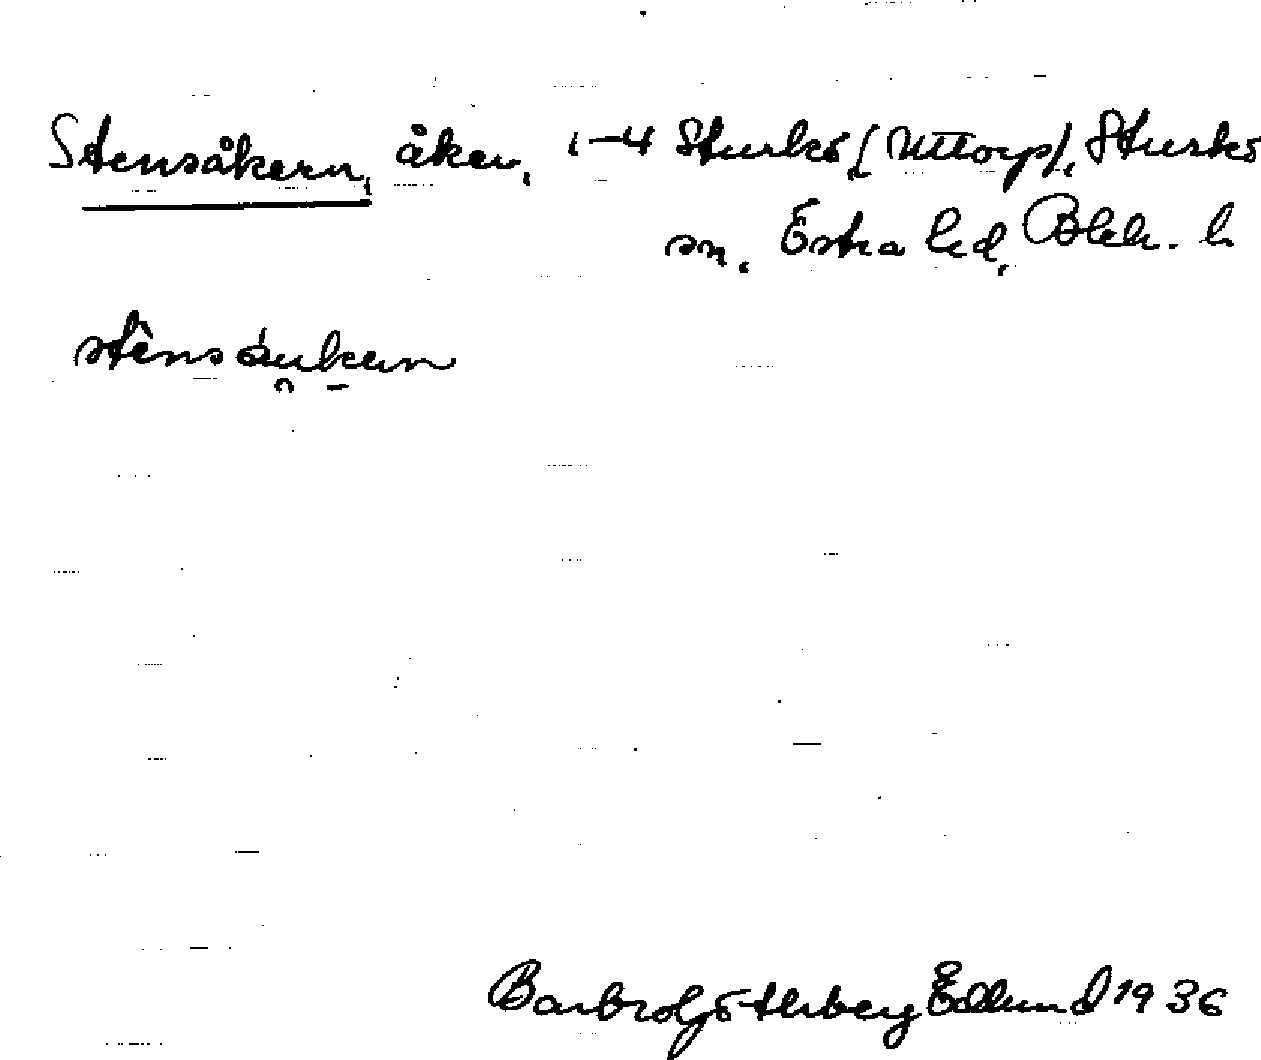 Stensåkern, åker, 1-4 Sturkö (Uttorp), Sturkö
sn. Östra hd, Blek. l.
Barbro Götherberg Edlund 1936